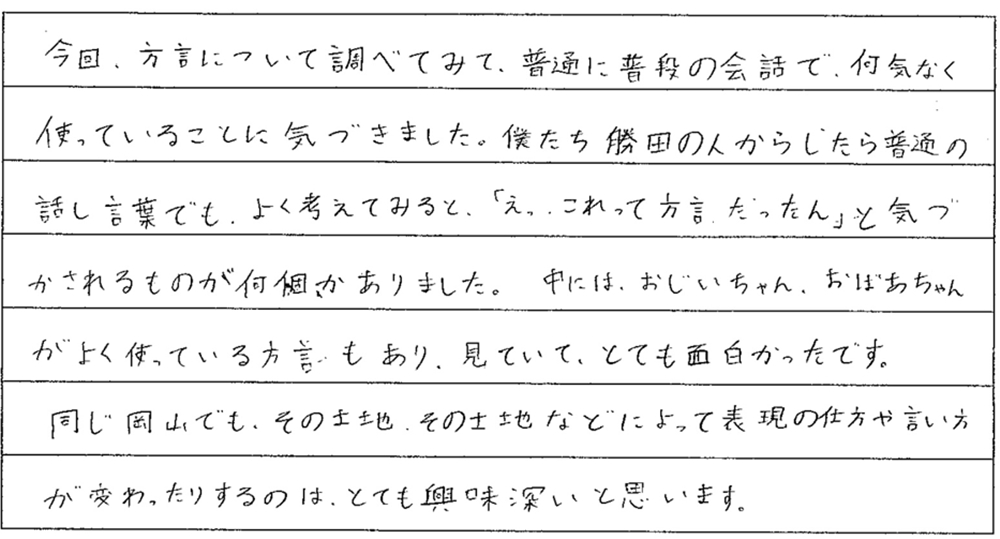 今回、方言について調べてみて、普通に普段の会話で、何気なく
使っていることに気づきました。僕たち勝田の人からしたら普通の
話し言葉でも、よく考えてみると、「えっ、これって方言だったん」と気づ
かされるものが何個かありました。中には、おじいちゃん、おばあちゃん
がよく使っている方言もあり、見ていて、とても面白かったです。
同じ岡山でも、その土地、その土地などによって表現の仕方や言い方
が変わったりするのは、とても興味深いと思います。